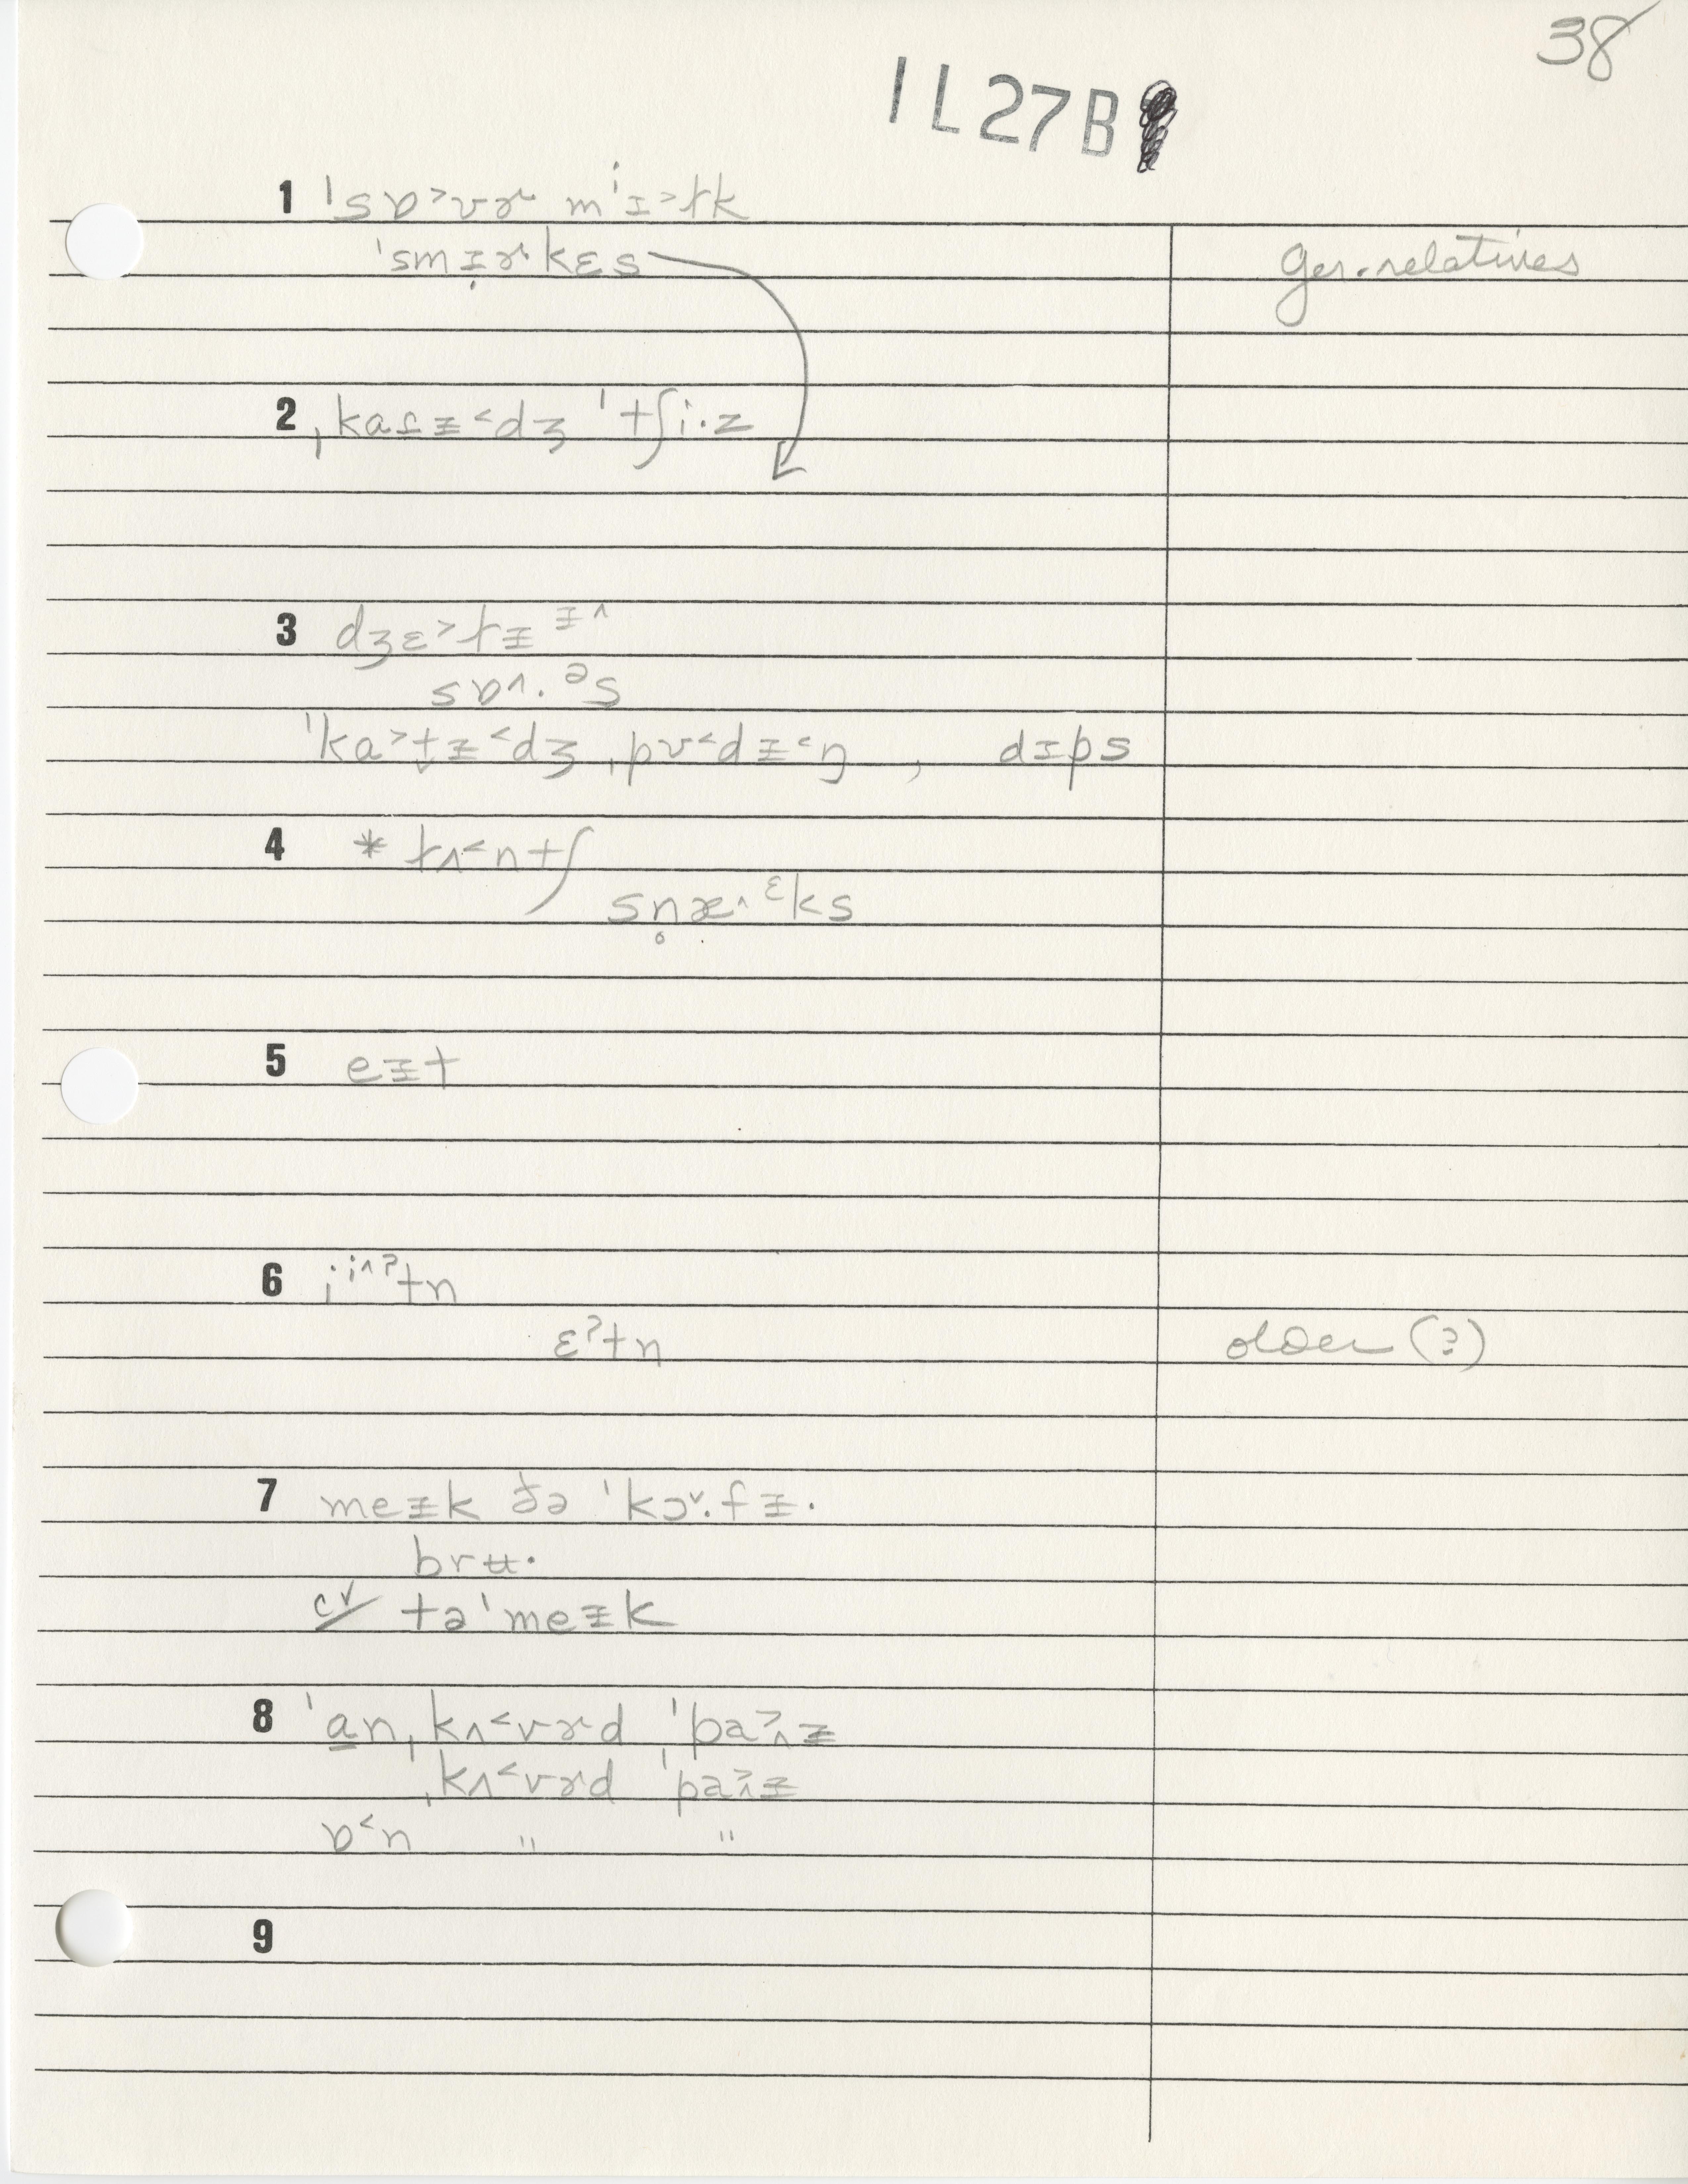 38
1L27B
1 ˈsɒ˃vɚ mⁱɪ˃ɫk
ˈsmɪɚkɛs
Ger. relatives
2 ˌkaɾᵻ˂dʒ ˈtʃi·z
3 dʒɛ˃ɫᵻ ᵻ^
sɒ^·ᵊs
ˈka˃t̬ᵻ˂dʒ ˌpʊ˂dᵻ˂ŋ , dɪps
4 * ɫʌ˂ntʃ
sn̥æ^ᵋks
5 eᵻt
6 iⁱ^ˀtn
ɛˀtn
older (?)
7 meᵻk ðə ˈkɔˇ·fᵻ·
brʉ·
cv təˈmeᵻk
8 ˈa̲n ˌkʌ˂vɚd ˈpa˃^ᵻ
ˌkʌ˂vɚd ˈpa˃^ᵻ
ɒ˂n " "
9